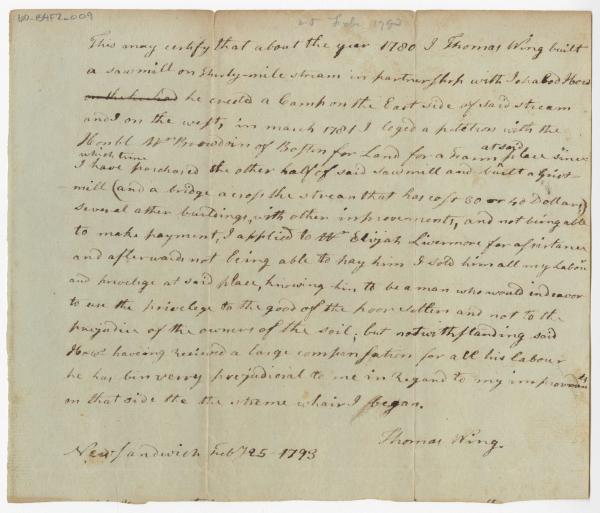 60-BAF2-009
25 Feb 1793
This may certify that about the year 1780 I Thomas Wing built
a sawmill on thirty-mile stream in partnership with Ichabod How
he erectd a Camp on the East side of said stream
and I on the west, in march 1781 I loged a petition with the
Honbl Mr Bowdoin of Boston for Land for a Farm at said place since
which time
I have purchased the other half of said sawmill and built a Grist-
mill (and a bridge across the stream that has cost 30 or 40 Dollars)
several other buildings, with other improvements, and not being able
to make payment, I applied to Mr Elijah Livermore for assistance
and afterwards not being able to pay him I sold him all my Labour
and privelege at said place, knowing him to be a man who would endeavor
to use the privelege to the good of the poor settlers and not to the
prejudice of the owners of the soil; but notwithstanding said
How having recieved a large compensation for all his labour
he has bin verry prejudicial to me in regard to my improvments
on that side the the streme whair I began.
Thomas Wing.
New Sandwich Feby 25 - 1793